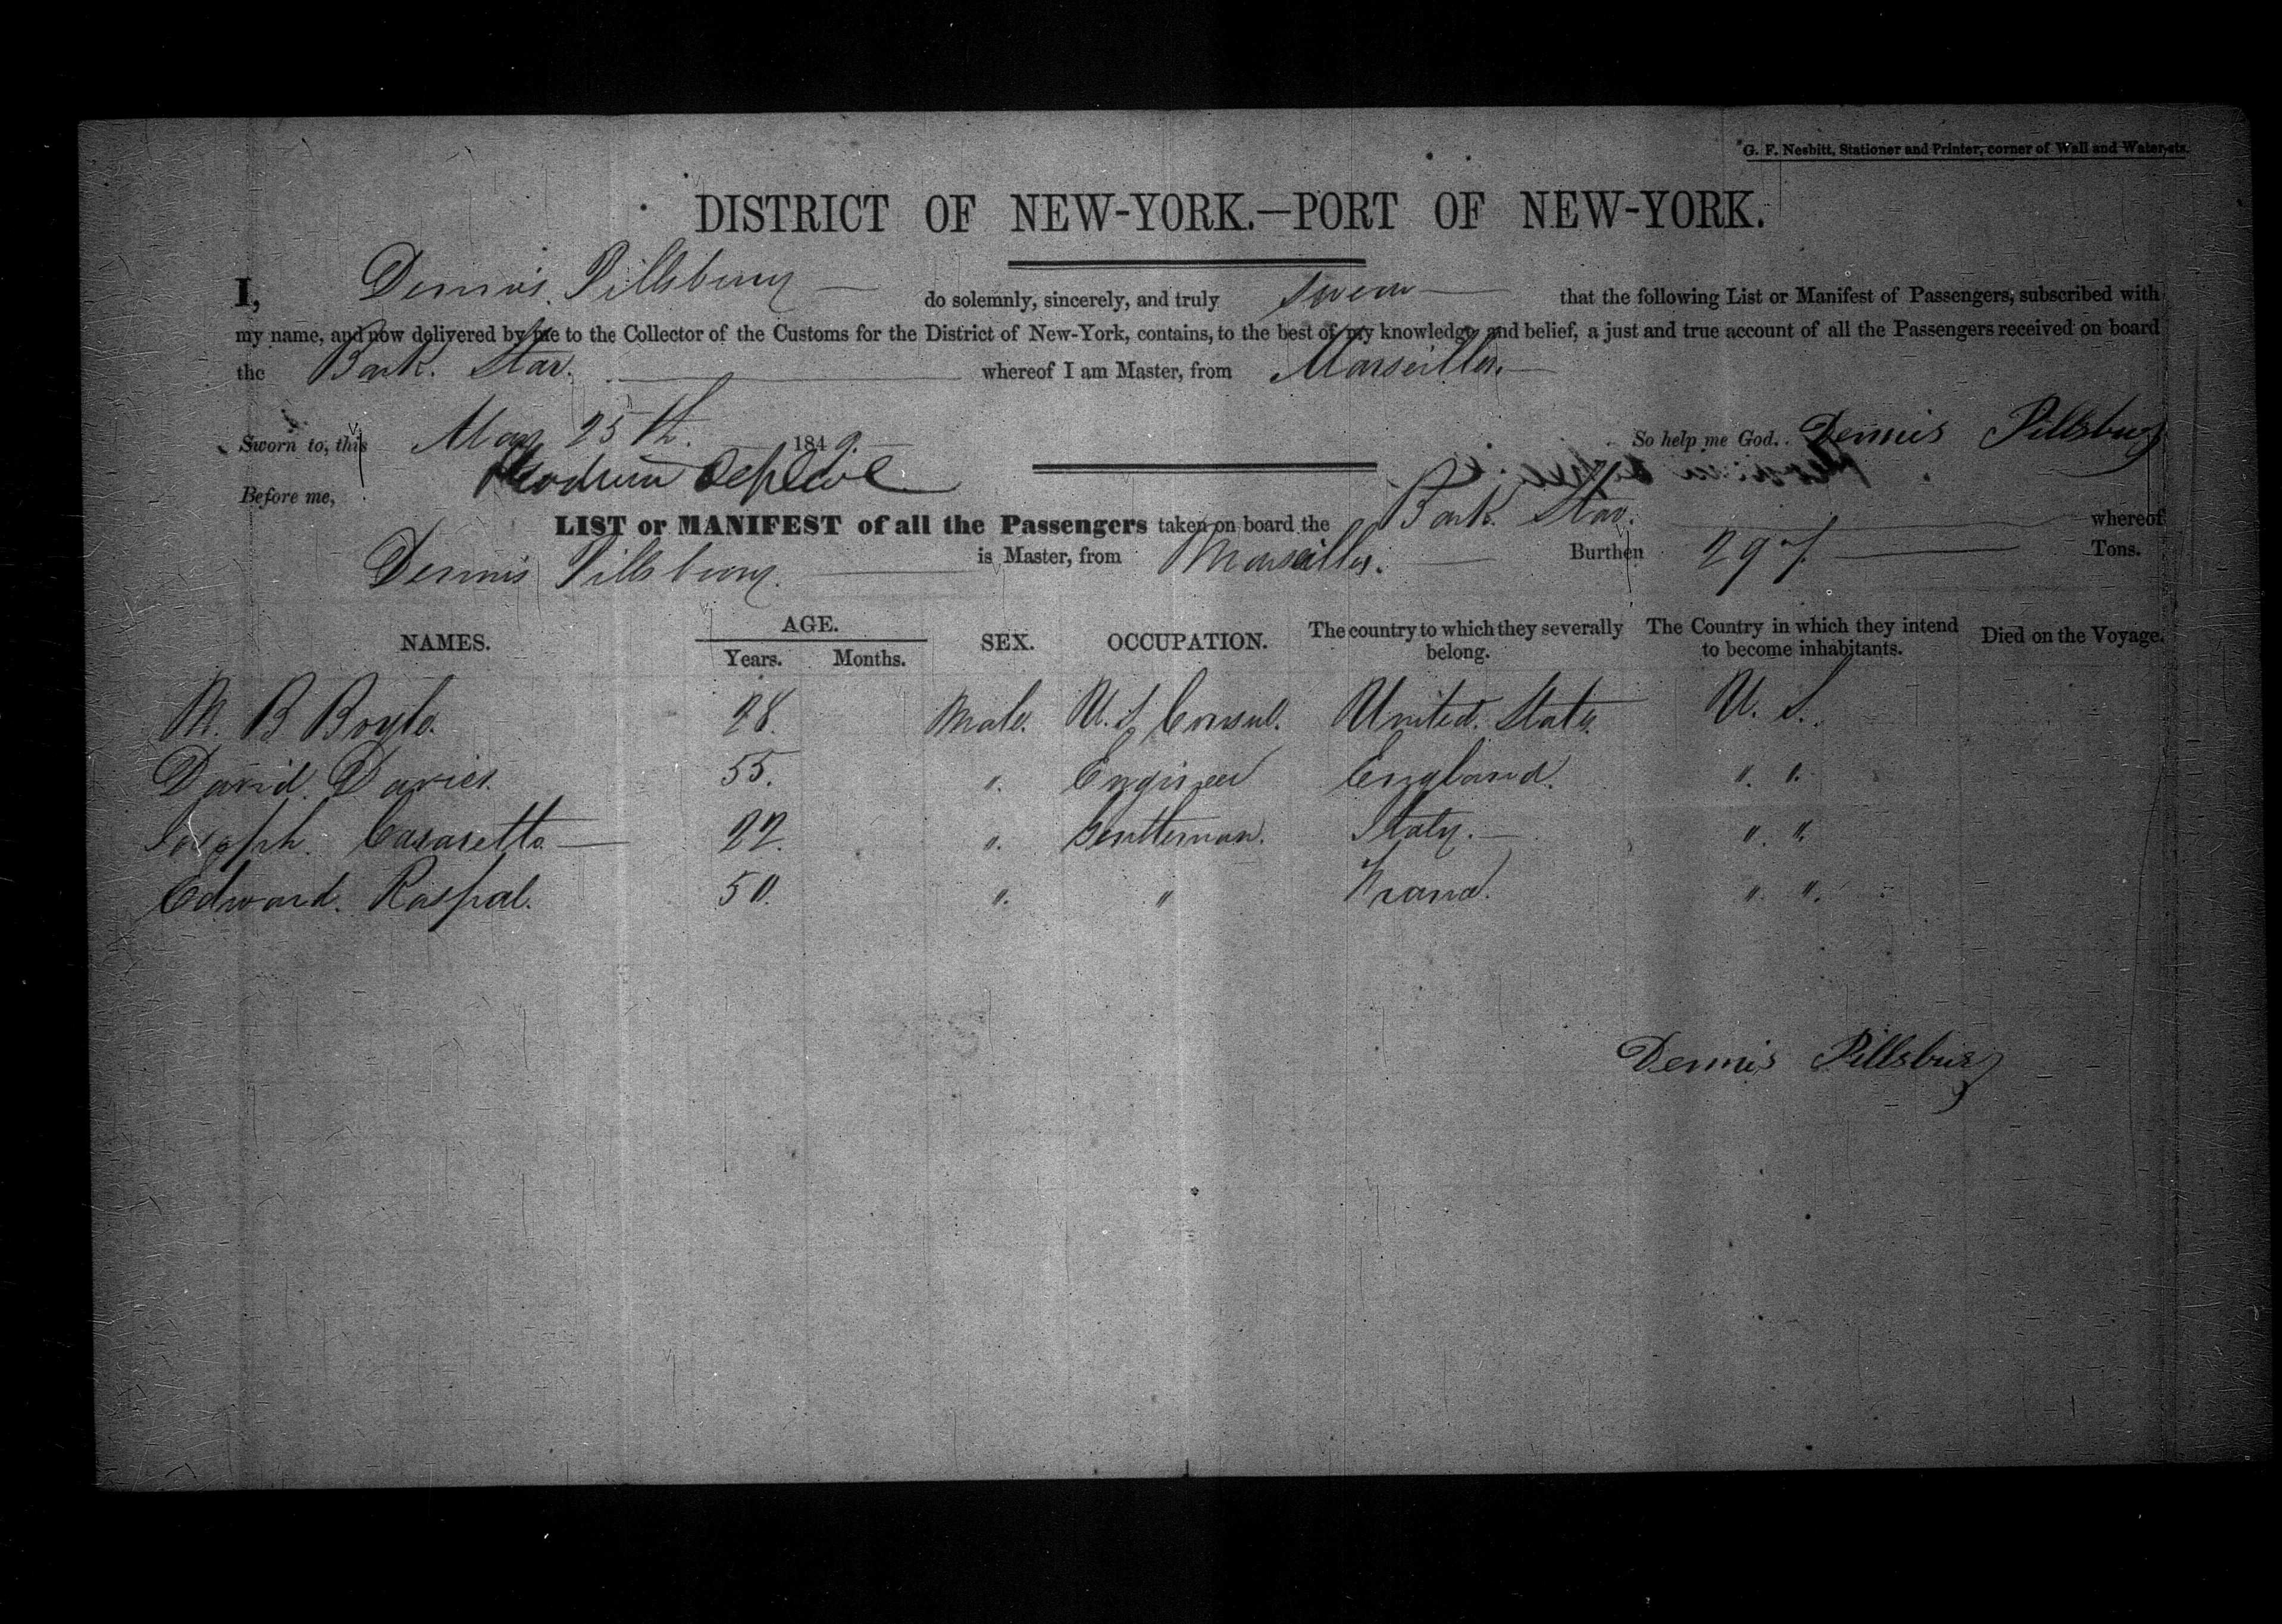 G. F. Nesbitt, Stationer and Printer, corner of Wall and Water-sts.
DISTRICT OF NEW-YORK.—PORT OF NEW-YORK.
I, Dennis Pillsbury do solemnly, sincerely, and truly swear that the following List or Manifest of Passengers, subscribed with
my name, and now delivered by me to the Collector of the Customs for the District of New-York, contains, to the best of my knowledge and belief, a just and true account of all the Passengers received on board
the Bark. Star. whereof I am Master, from Marseilles.
Sworn to, this May 25th. 1849. So help me God. Dennis Pillsbury
Before me,
LIST or MANIFEST of all the Passengers taken on board the Bark. Star. whereof
Dennis Pillsbury. is Master, from Marseilles. Burthen 297. Tons.
NAMES. AGE. SEX. OCCUPATION. The country to which they severally belong. The Country in which they intend to become inhabitants. Died on the Voyage.
Years. Months.
M. B Boyle. 28. Male. U. S. Consul. United. States. U. S.
David. Davies. 55. ". Engineer England. ". ".
Joseph. Casaretto 22. ". Gentleman. Italy. ". ".
Edward. Raspal. 50. ". " France. ". ".
Dennis Pillsbury